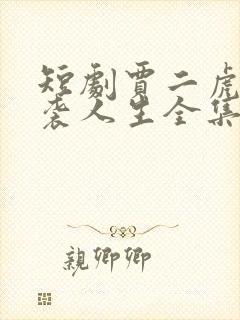 短劇賈二虎
袭人生全集
親卿卿